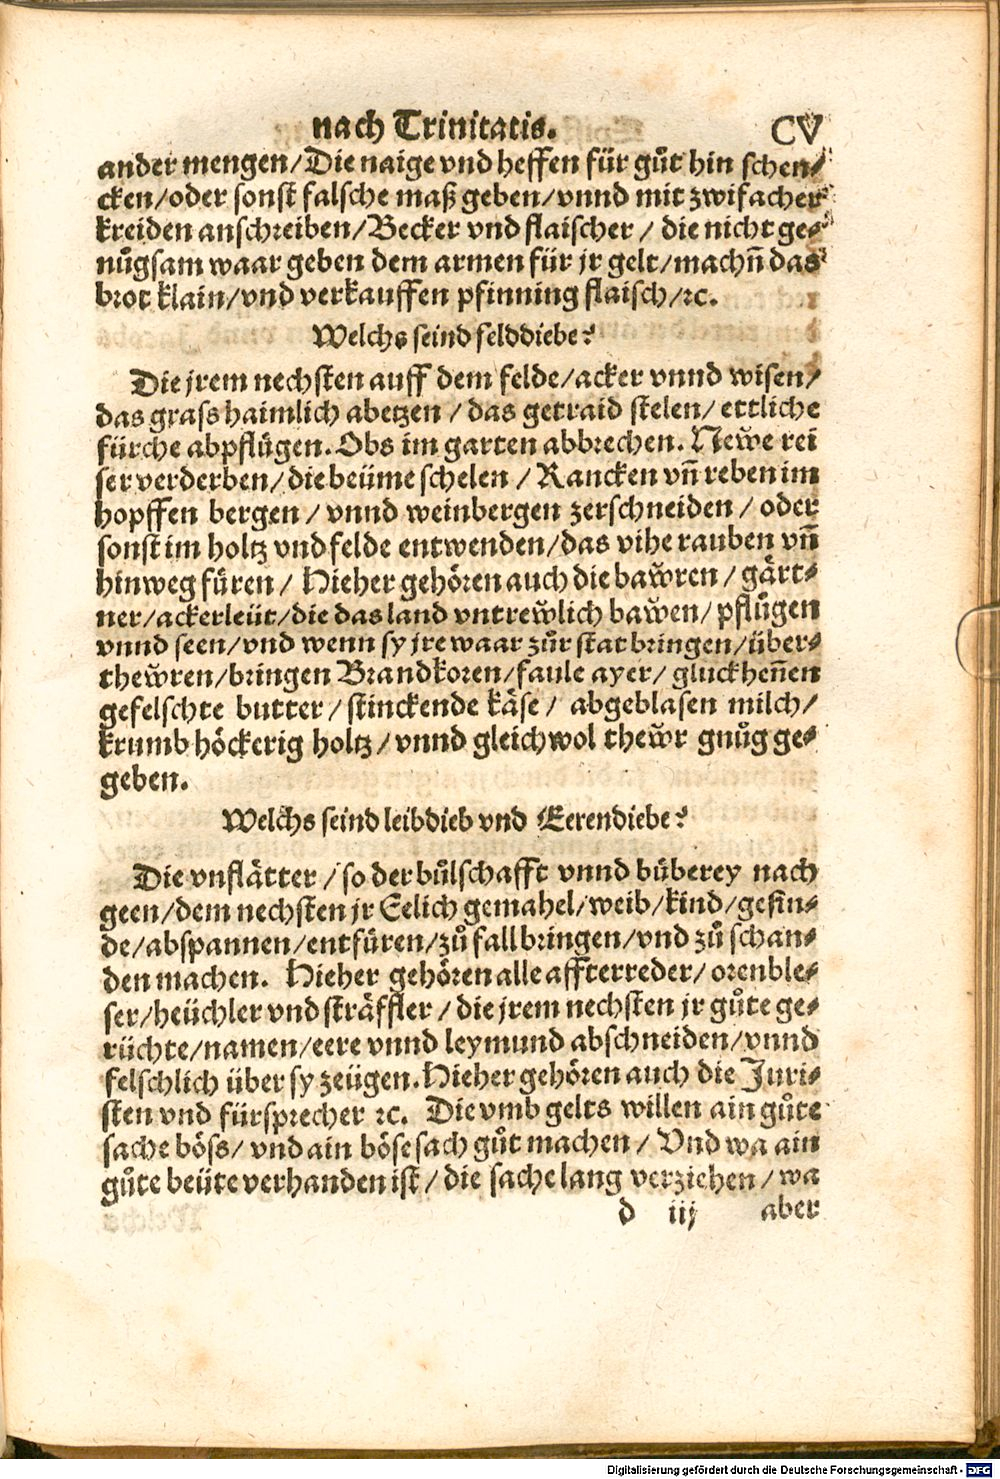 nach Trinitatis. CV
ander mengen/Die naige vnd heffen für gůt hin schen⸗
cken/oder sonst falsche maß geben/vnnd mit zwifacher
kreiden anschreiben/Becker vnd flaischer / die nicht ge⸗
nůgsam waar geben dem armen für jr gelt/machñ das
brot klain/vnd verkauffen pfinning flaisch/ꝛc.
Welchs seind felddiebe?
Die jrem nechsten auff dem felde/acker vnnd wisen/
das grass haimlich abetzen / das getraid stelen/ ettliche
fürche abpflügen. Obs im garten abbrechen. Newe rei
ser verderben/die beüme schelen / Rancken vñ reben im
hopffen bergen / vnnd weinbergen zerschneiden / oder
sonst im holtz vnd felde entwenden/das vihe rauben vñ
hinweg füren / Hieher gehören auch die bawren / gärt⸗
ner/ackerleüt/die das land vntrewlich bawen/ pflůgen
vnnd seen/vnd wenn sy jre waar zůr stat bringen/über⸗
thewren/bringen Brandkoren/faule ayer/ gluckheñen
gefelschte butter/ stinckende käse/ abgeblasen milch/
krumb höckerig holtz/vnnd gleichwol thewr gnůg ge⸗
geben.
Welchs seind leibdieb vnd Eerendiebe?
Die vnflätter/so der bůlschafft vnnd büberey nach
geen/dem nechsten jr Eelich gemahel/weib/kind/gesin⸗
de/abspannen/entfüren/zů fall bringen/vnd zů schan⸗
den machen. Hieher gehören alle affterreder/ orenble⸗
ser/heüchler vnd sträffler / die jrem nechsten jr gůte ge⸗
rüchte/namen/eere vnnd leymund abschneiden/vnnd
felschlich über sy zeügen. Hieher gehören auch die Juri⸗
sten vnd fürsprecher ꝛc. Die vmb gelts willen ain gůte
sache böss/ vnd ain böse sach gůt machen / Vnd wa ain
gůte beüte verhanden ist / die sache lang verziehen / wa
d iij aber
Digitalisierung gefördert durch die Deutsche Forschungsgemeinschaft - DFG